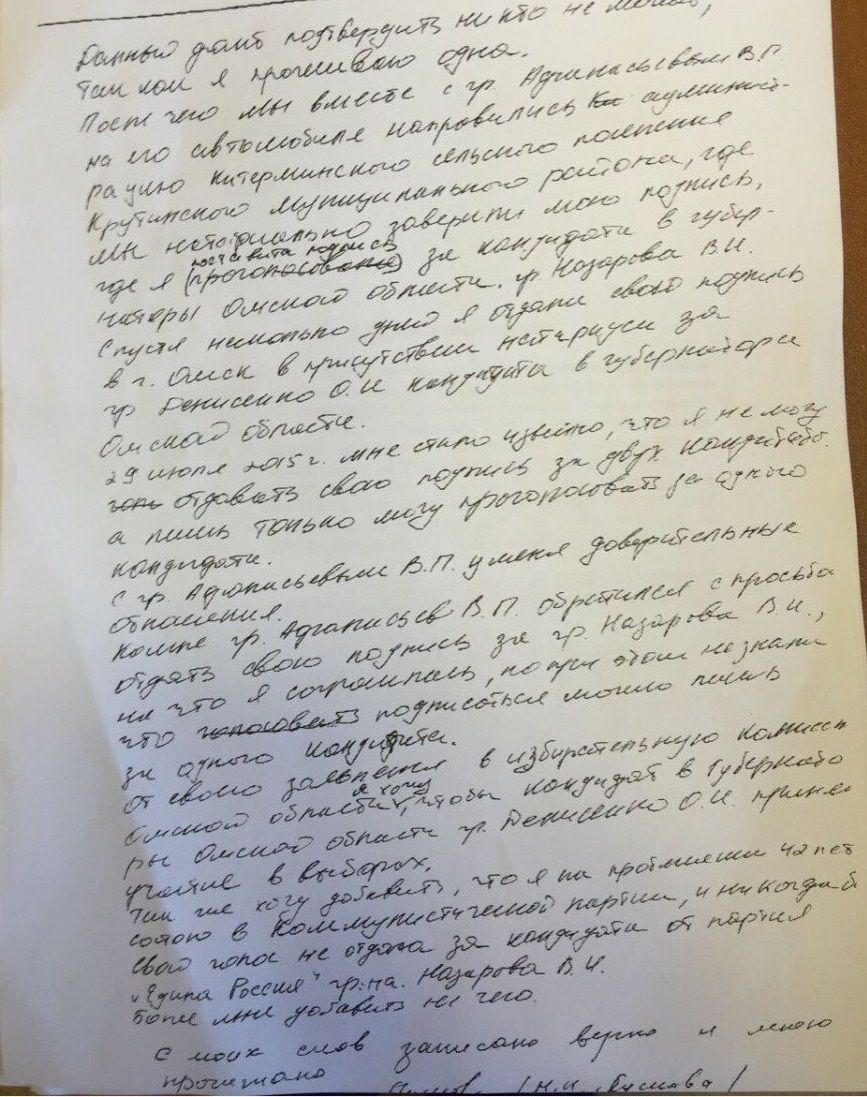 Данный факт подтвердить никто не может,
так как я проживаю одна.
После чего мы вместе с гр. Афанасьевым В.П.
на его автомобиле направились в админист-
рацию Китерминского сельского поселения
Крутинского муниципального района, где
мы нотариально заверили мою подпись,
поставила подпись
где я (проголосовала) за кандидата в губер-
наторы Омской области. гр. Назарова В.И.
Спустя несколько дней я отдала свою подпись
в г. Омск в присутствии нотариуса за
гр Денисенко О.И кандидата в губернатора
Омской области.
29 июля 2015 г. мне стало извесно, что я не могу
отдавать свою подпись за двух кандидатов.
а лишь только могу проголосовать за одного
кандидата.
С гр. Афанасьевым В.П. у меня доверительные
отнашения.
Комне гр. Афанасьев В.П. обратился с просьба
отдать свою подпись за гр. Назарова В.И.,
на что я согласилась, но при этом не знала
что голосовать подписаться можно лишь
за одного кандидата.
От своего заявления в избирательную комиссии
я хочу
Омской области, чтобы кандидат в Губернато
ры Омской области гр. Денисенко О.И. принел
участие в выборах.
Так же хочу добавить, что я на протяжении 42 лет
состою в Коммунистической партии, и никогда б
свой голос не отдала за кандидата от партия
"Едина Россия" гр-на. Назарова В.И.
Более мне добавить не чего.
С моих слов записано верно и мною
прочитано